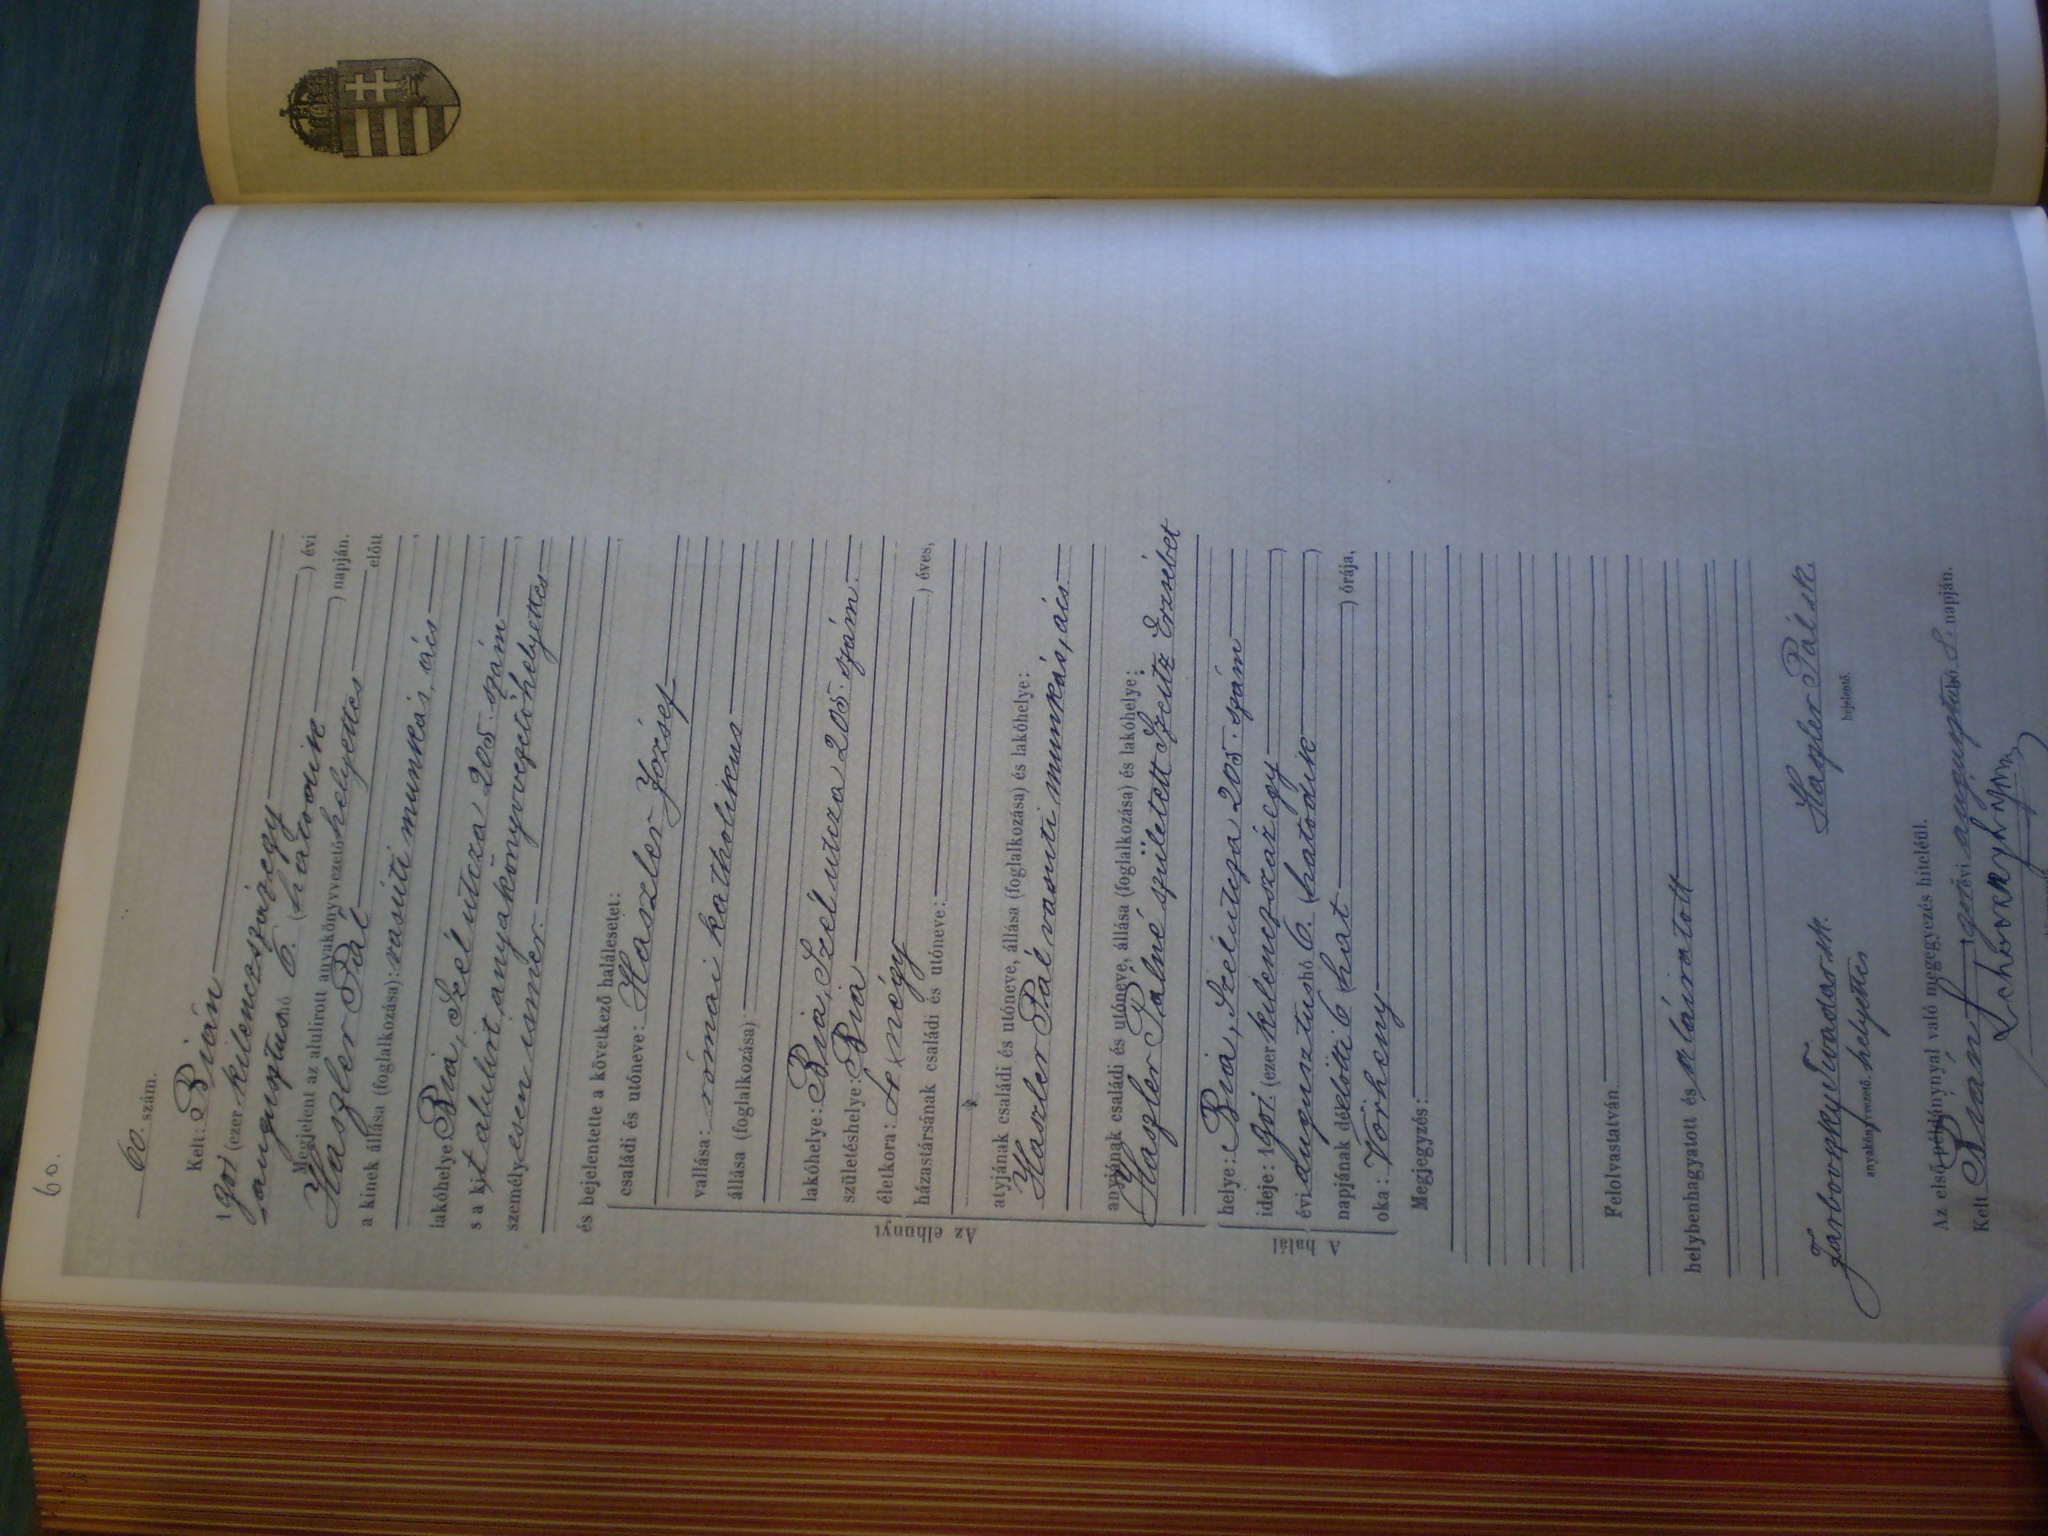 60.
60. szám.
Kelt: Bián
1901 (ezer kilenczszázegy) évi
augusztus hó 6. (hatodik) napján.
Megjelent az alulirott anyakönyvvezető helyettes előtt
Haszler Pál
a kinek állása (foglalkozása): vasúti munkás, ács
lakóhelye: Bia, Szél utcza 205. szám
s a kit alulirt anyakönyvvezetőhelyettes
személyesen ismer.
és bejelentette a következő halálesetet:
Az elhunyt
családi és utóneve: Haszler József
vallása: római katholikus
állása (foglalkozása)
lakóhelye: Bia, Szél utcza 205. szám.
születéshelye: Bia
életkora: 4 (négy) éves,
házastársának családi és utóneve:
atyjának családi és utóneve, állása (foglalkozása) és lakóhelye:
Haszler Pál vasuti munkás, ács
anyjának családi és utóneve, állása (foglalkozása) és lakóhelye:
Haszler Pálné született Szeitz Erzsébet
A halál
helye: Bia, Szél utcza 205. szám
ideje: 1901. (ezer kilenczszázegy)
évi augusztus hó 6. (hatodik)
napjának délelőtti 6 (hat) órája,
oka: Vörheny
Megjegyzés:
Felolvastatván
helybenhagyatott és aláiratott
Haszler Pál sk.
bejelentő.
Tivadar sk.
anyakönyvvezető. helyettes
Az első példánynyal való megegyezés hiteléül.
Kelt Bián, 1901 évi augusztus hó 8. napján.